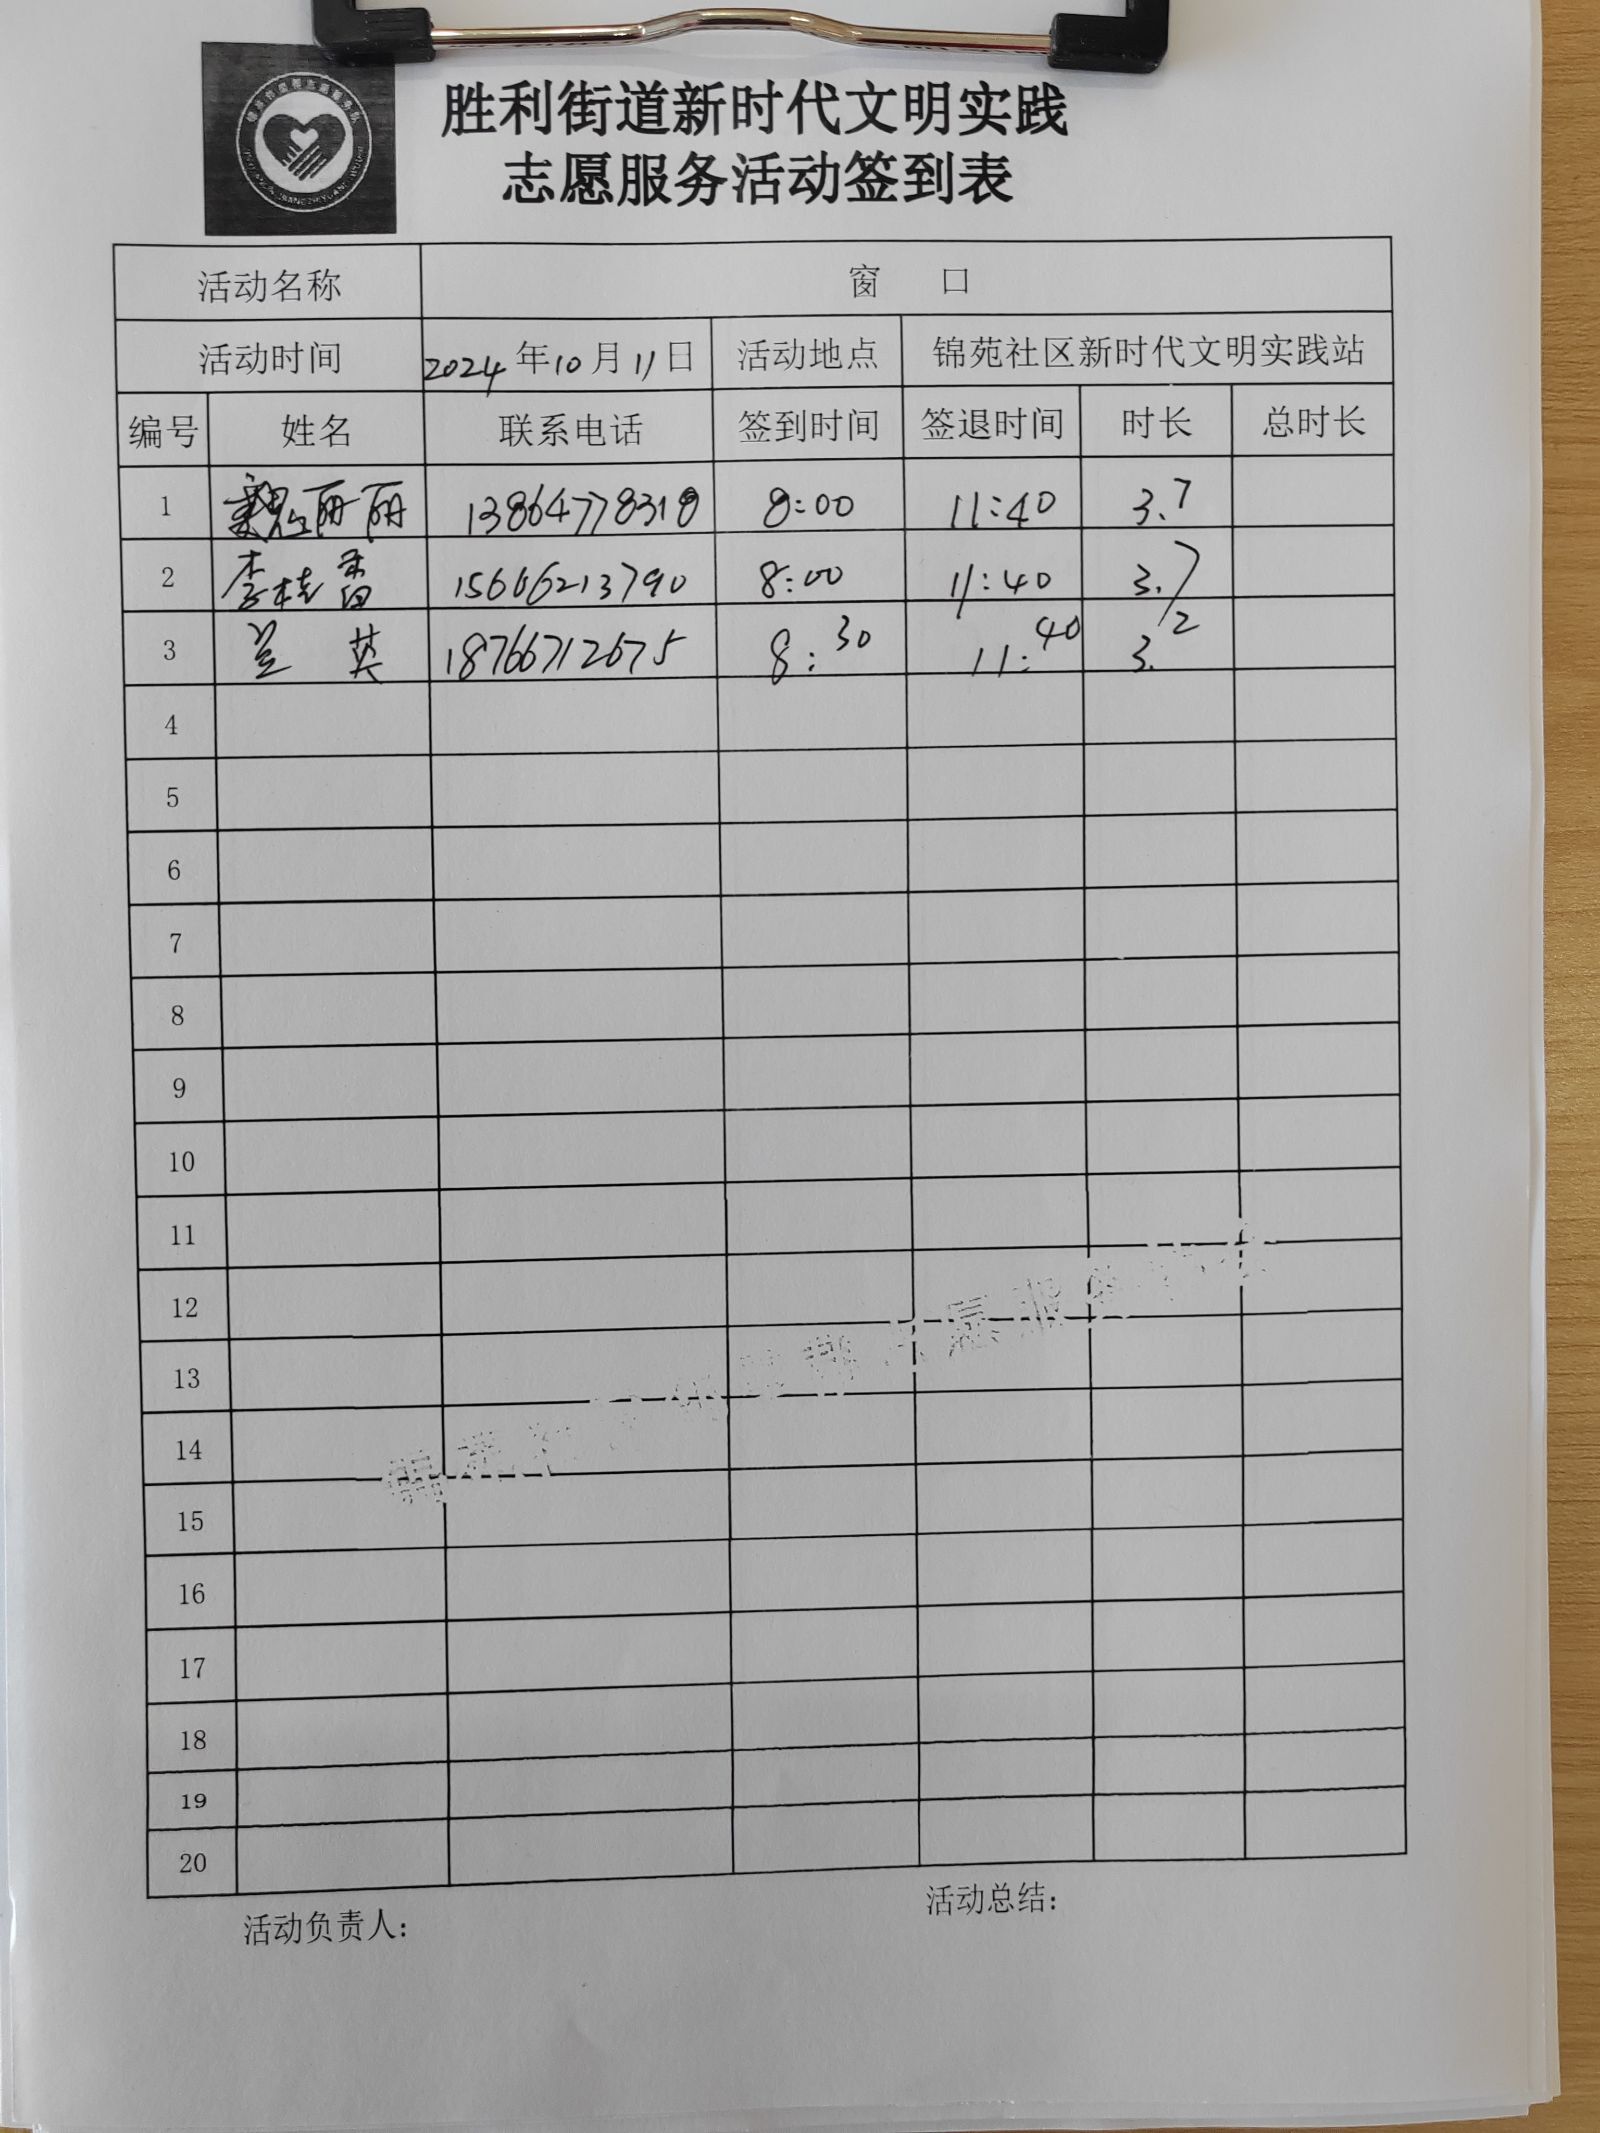 胜利街道新时代文明实践
志愿服务活动签到表
活动名称 窗 口
活动时间 2024年10月11日 活动地点 锦苑社区新时代文明实践站
编号 姓名 联系电话 签到时间 签退时间 时长 总时长
1 魏丽丽 13864778318 8:00 11:40 3.7
2 李桂香 15666213790 8:00 11:40 3.7
3 兰英 18766712675 8:30 11:40 3.2
4
5
6
7
8
9
10
11
12
13
14
15
16
17
18
19
20
活动负责人: 活动总结: